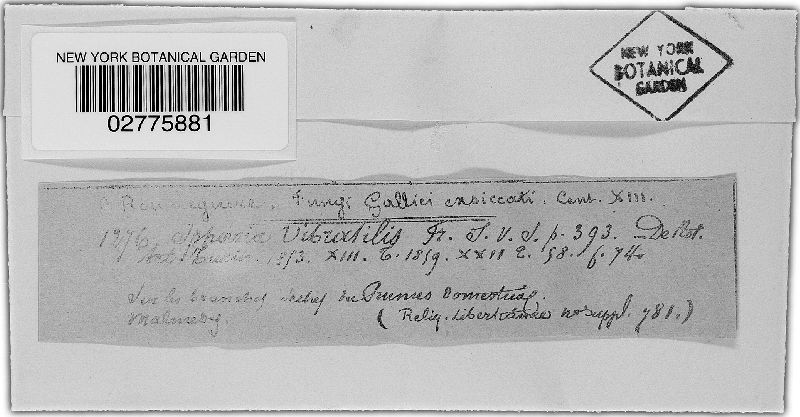 NEW YORK BOTANICAL GARDEN
02775881
NEW YORK
BOTANICAL
GARDEN
C. Roumeguère. Fungi Gallici exsiccati. Cent. XIII.
1276. Sphaeria Vibratilis Fr. S. V. S. p. 393. — De Not.
1853. XIII. t. 1859. XXII E. 58. f. 74.
Sur les branches du Prunus Domestica.
Malmedy.
( Reliq. Libertianae no suppl. 781.)